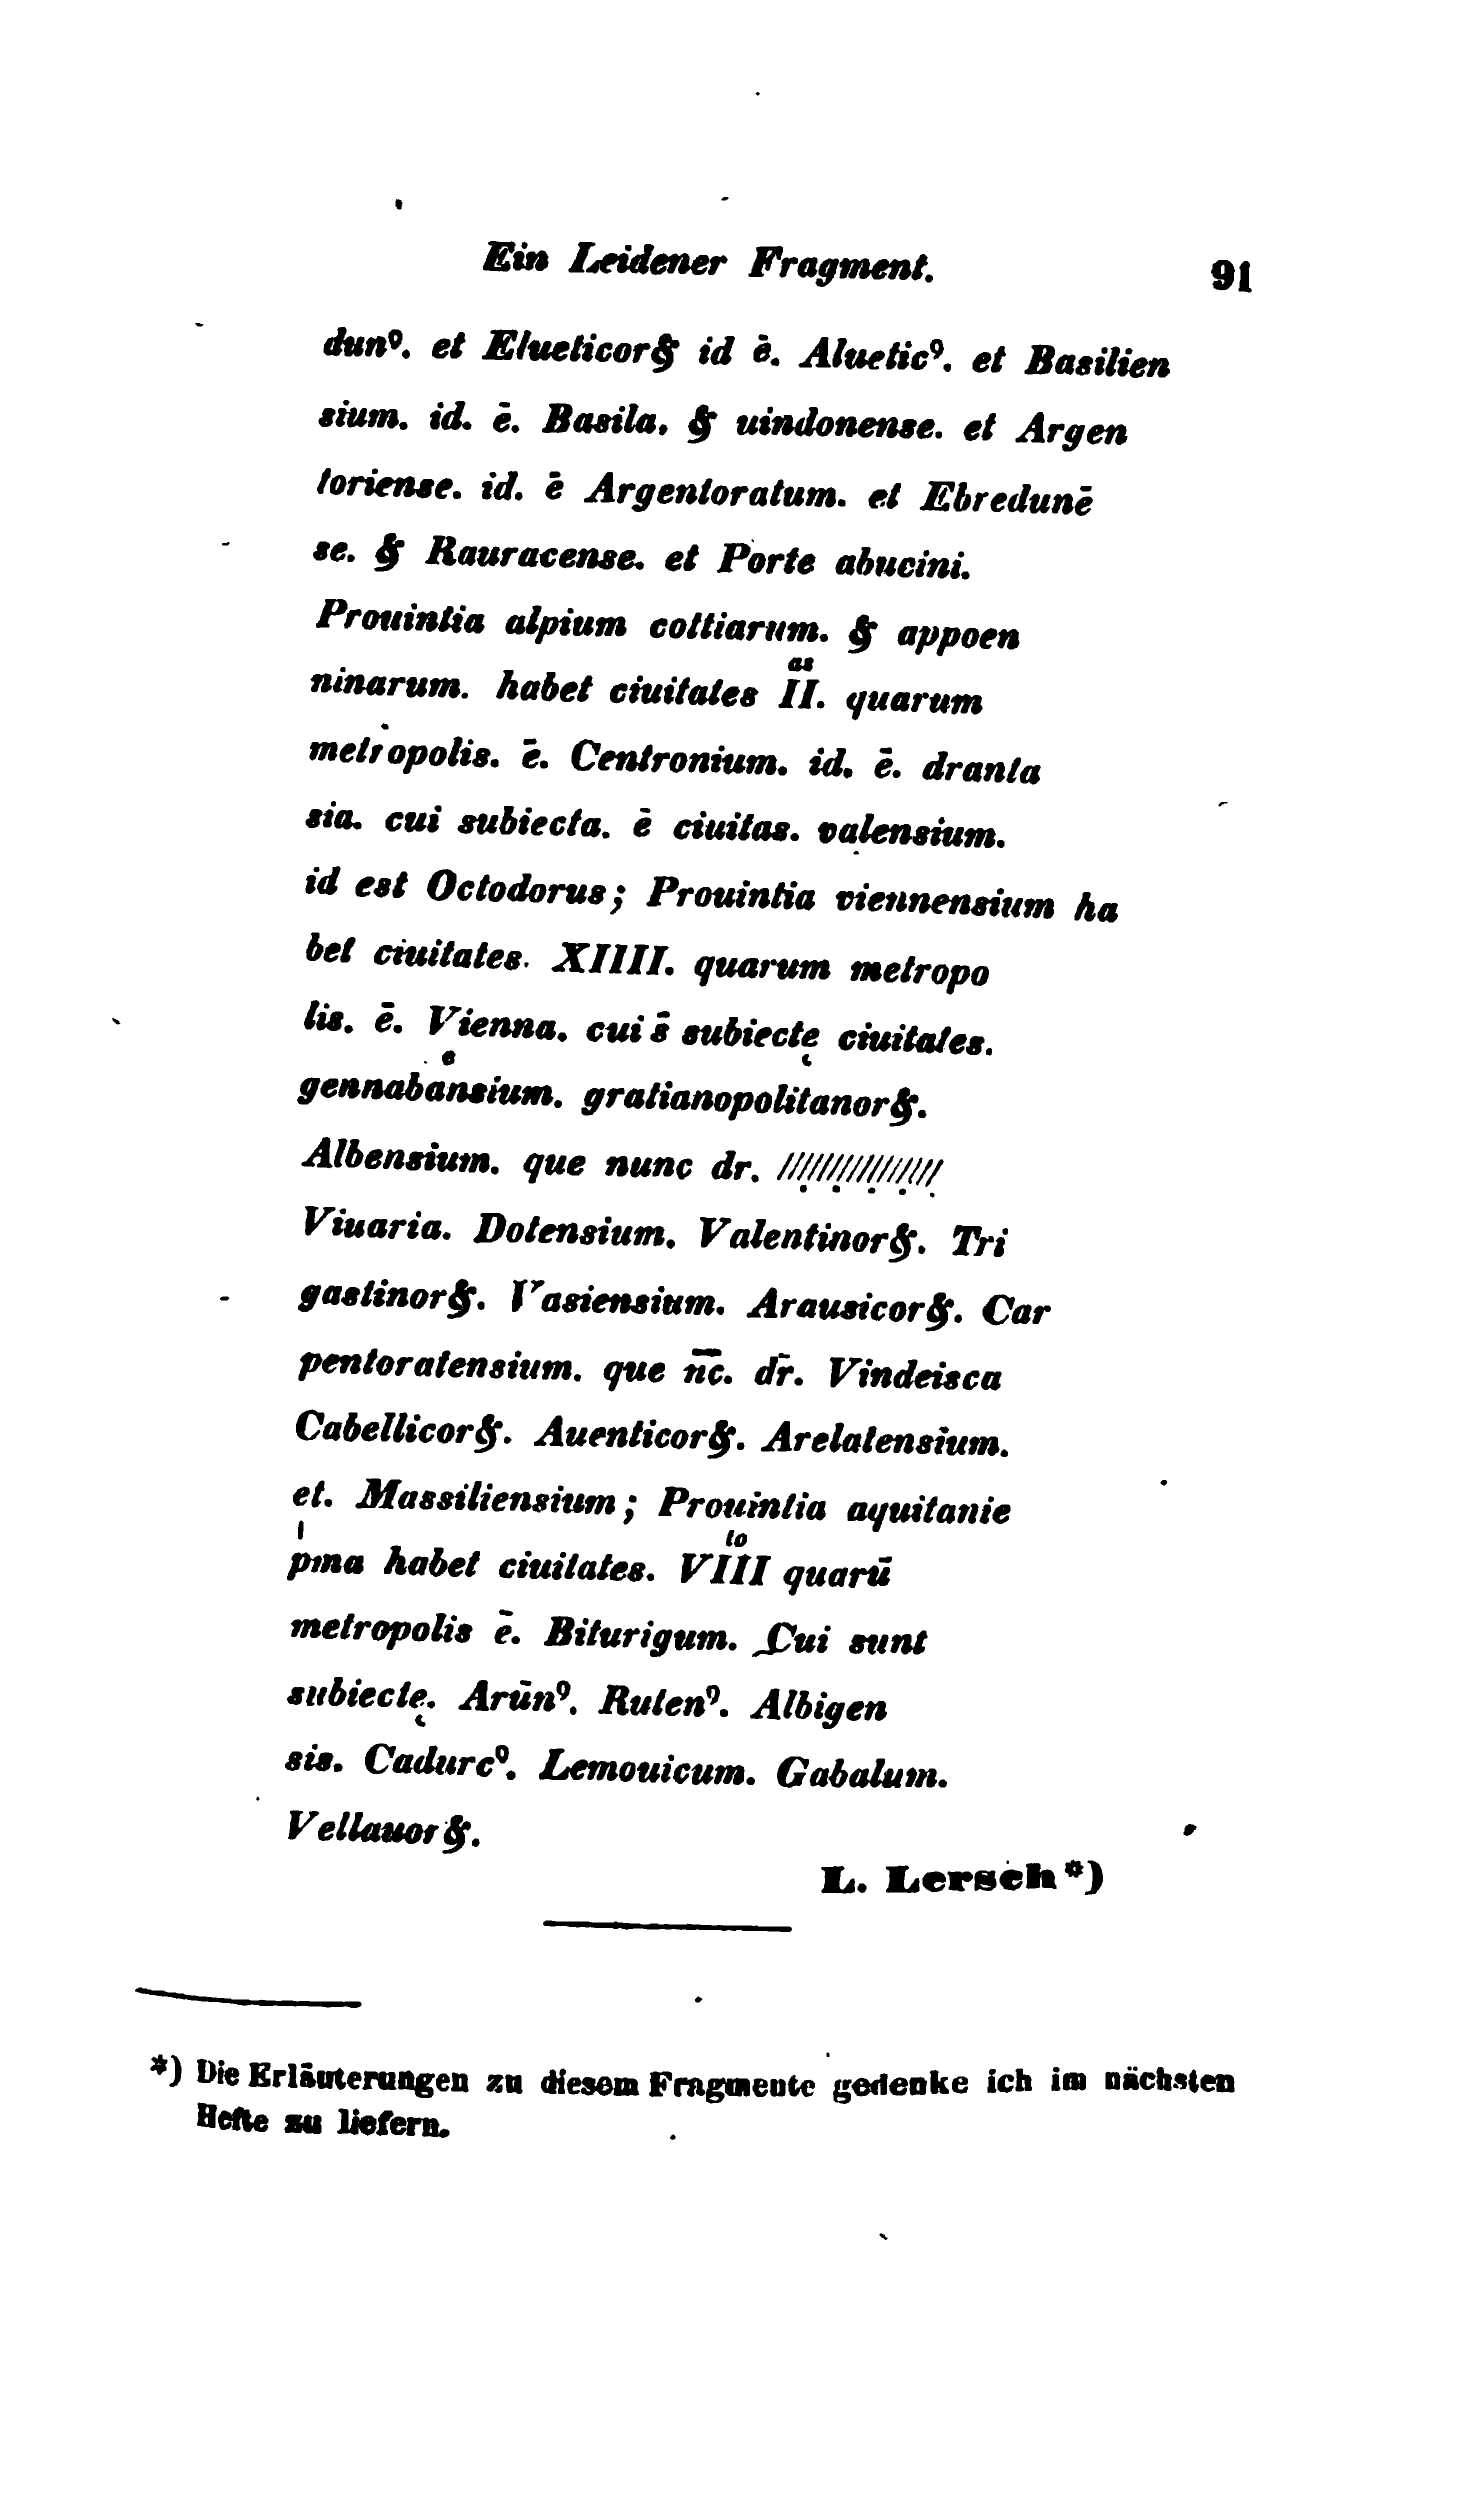 Ein Leidener Fragment. 91
dunꝰ. et Elueticor& id ē. Alueticꝰ. et Basilien
sium. id. ē. Basila. & uindonense. et Argen
toriense. id. ē Argentoratum. et Ebredunē
se. & Rauracense. et Porte abucini.
Prouintia alpium cottiarum. & appoen
as
ninarum. habet ciuitates II. quarum
metropolis. ē. Centronium. id. ē. dranta
sia. cui subiecta. ē ciuitas. valensium.
id est Octodorus; Prouintia viennensium ha
bet ciuitates. XIIII. quarum metropo
lis. ē. Vienna. cui s̄ subiectę ciuitates.
e
gennabansium. gratianopolitanor&.
Albensium. que nunc dr. ////////////////
Viuaria. Dotensium. Valentinor&. Tri
gastinor&. Vasiensium. Arausicor&. Car
pentoratensium. que n̄c̄. dr̄. Vindeisca
Cabellicor&. Auenticor&. Arelatensium.
et. Massiliensium; Prouintia aquitanie
ı to
pma habet ciuitates. VIII quarū
metropolis ē. Biturigum. Cui sunt
subiectę. Arūnꝰ. Rutenꝰ. Albigen
sis. Cadurcꝰ. Lemouicum. Gabalum.
Vellauor&.
L. Lersch*)
*) Die Erläuterungen zu diesem Fragmente gedenke ich im nächsten
Hefte zu liefern.